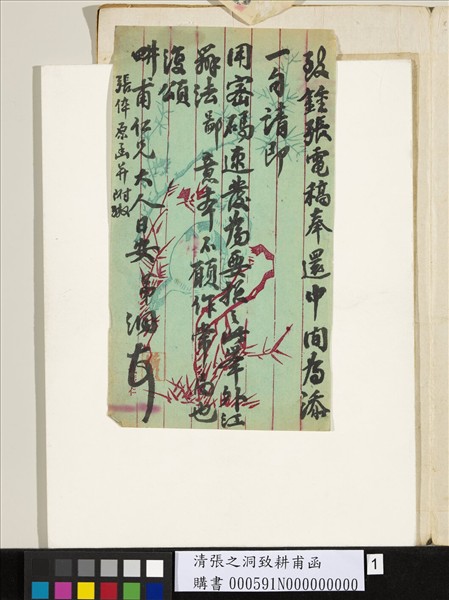 致鐘張電稿奉還中間為添
一句請即
用密碼速發為要 此舉即江
辦法鄙意本不願作常 也
復頌
耕甫仁兄大人日安 弟洞
張偉原函并附繳
清張之洞致耕甫函
購書 000591N000000000
1